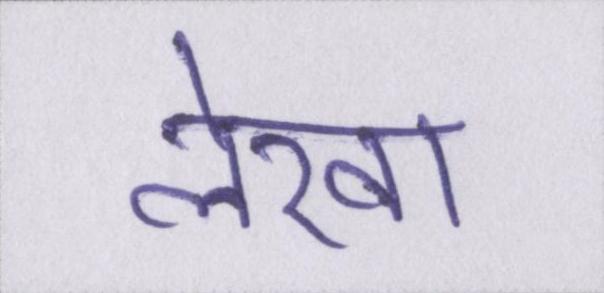 लेखा